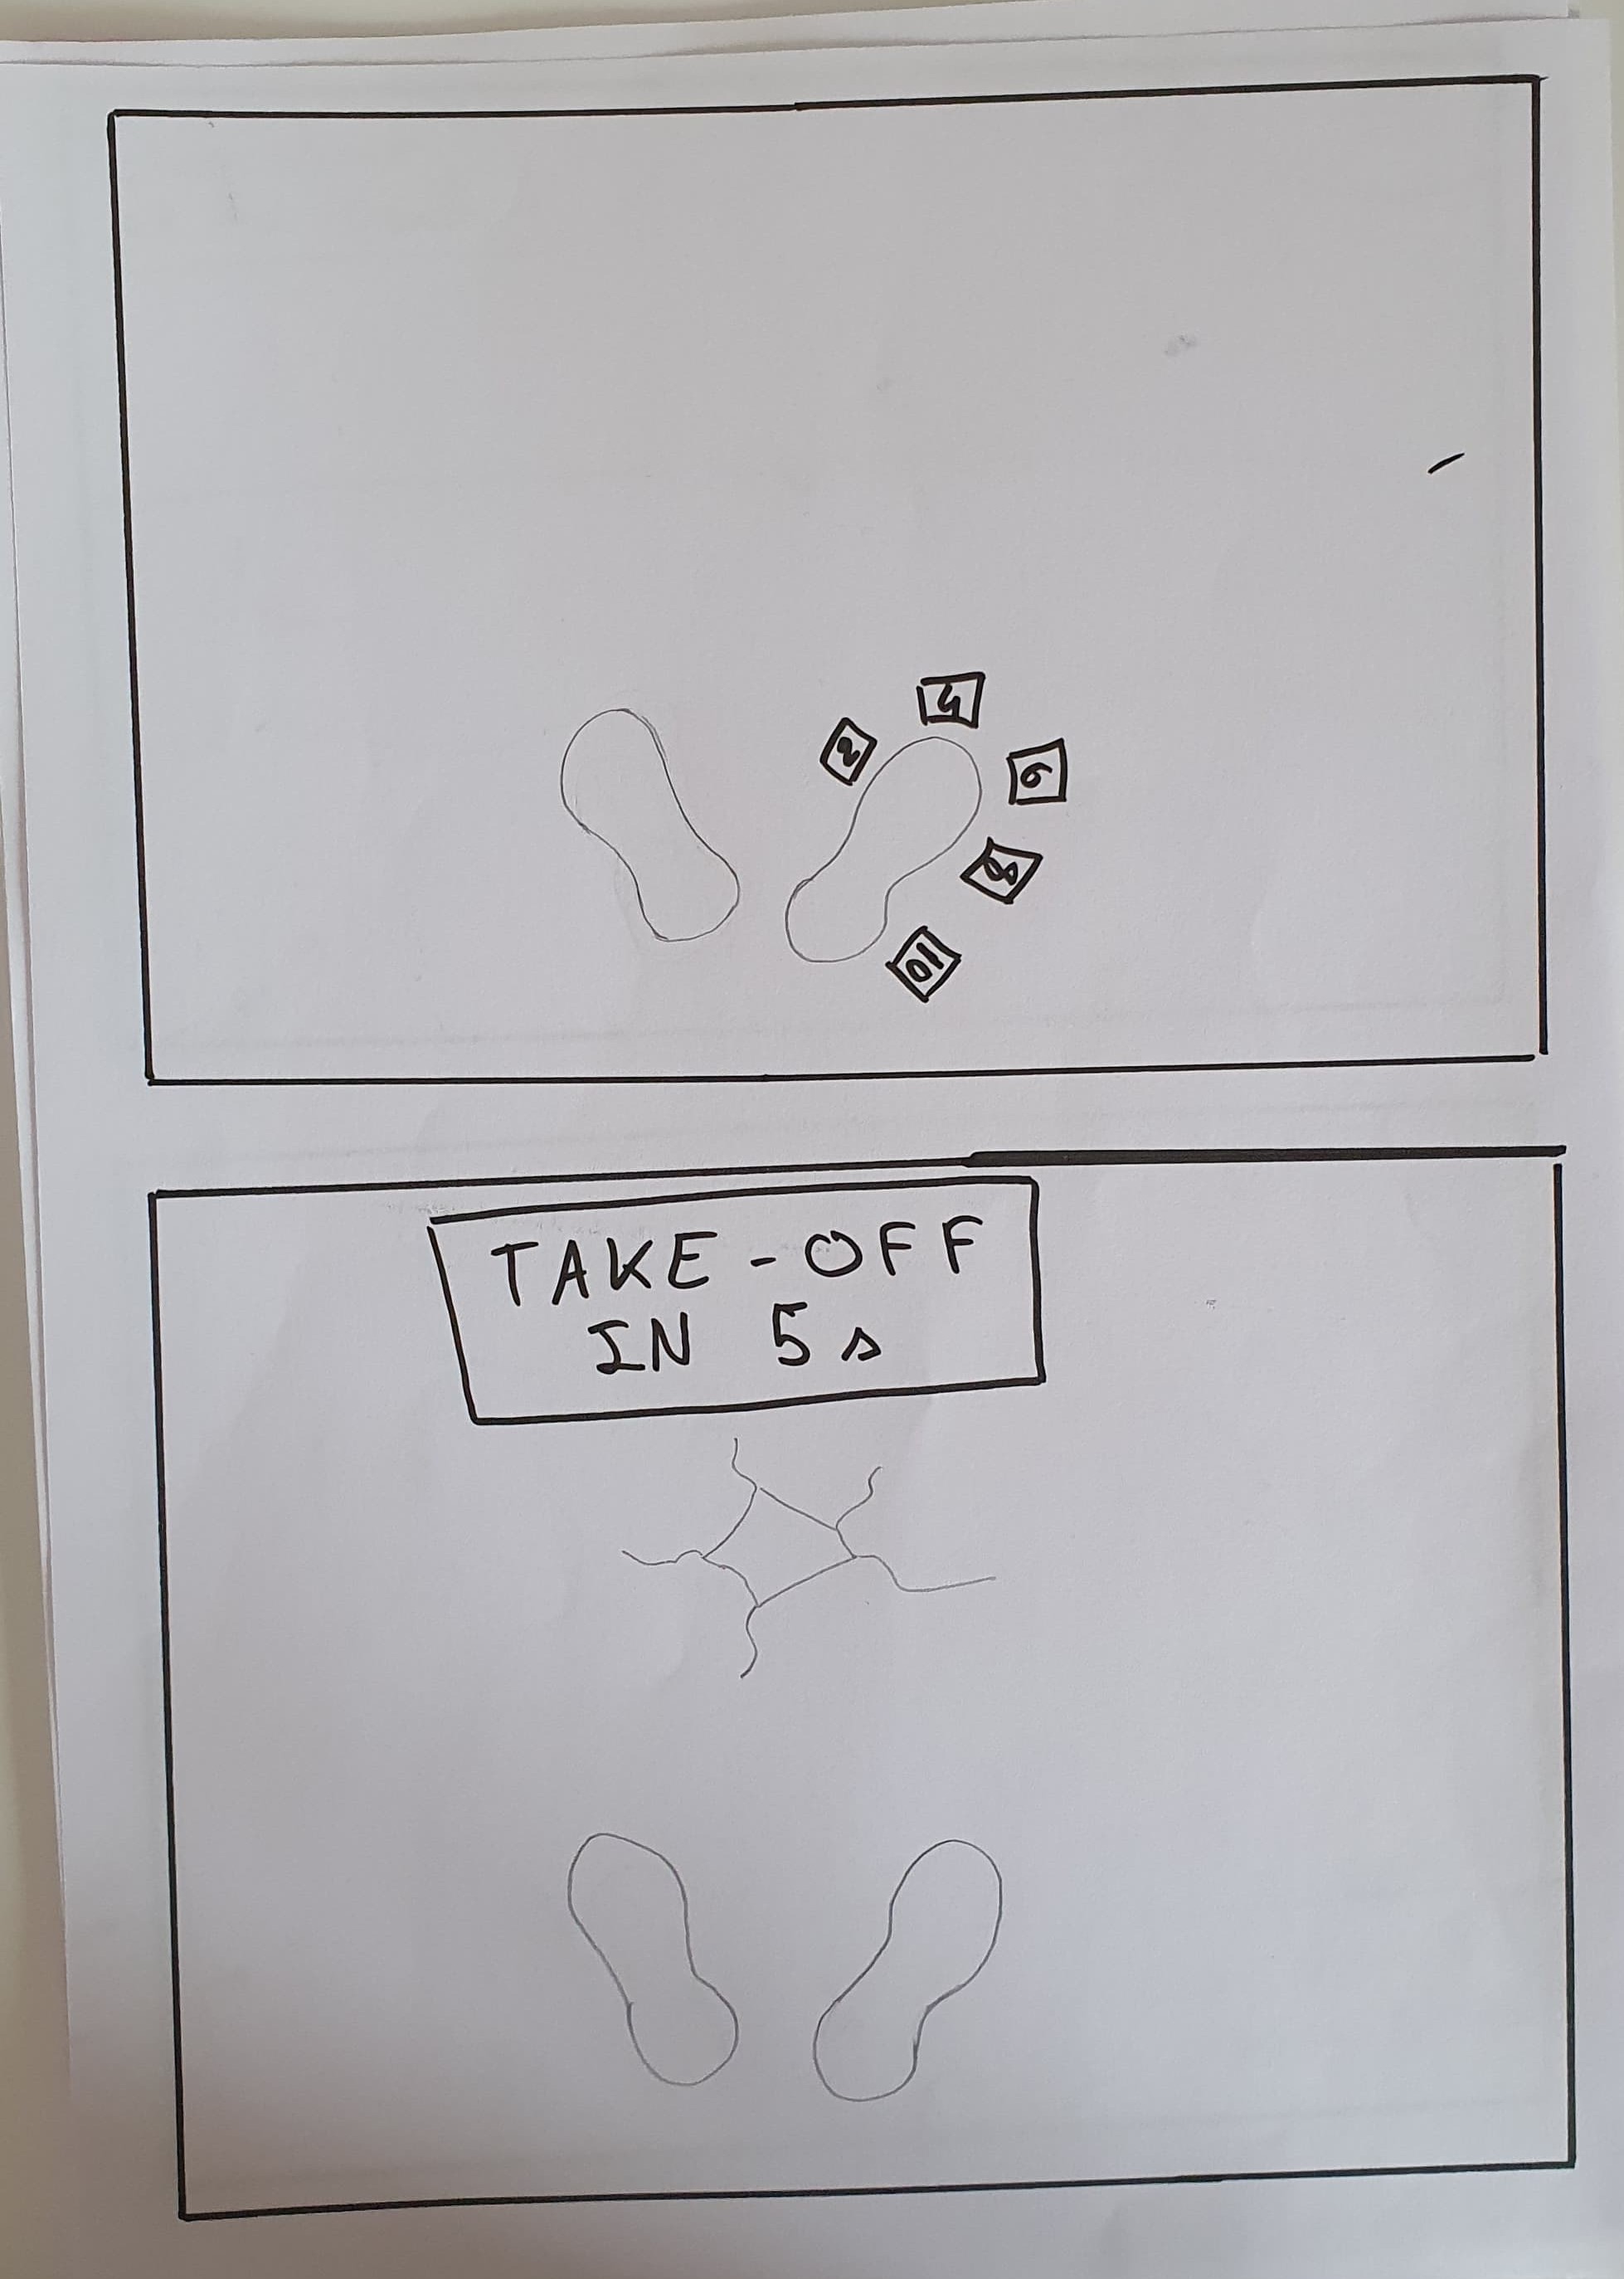 2
4
6
8
10
TAKE-OFF
IN 5s